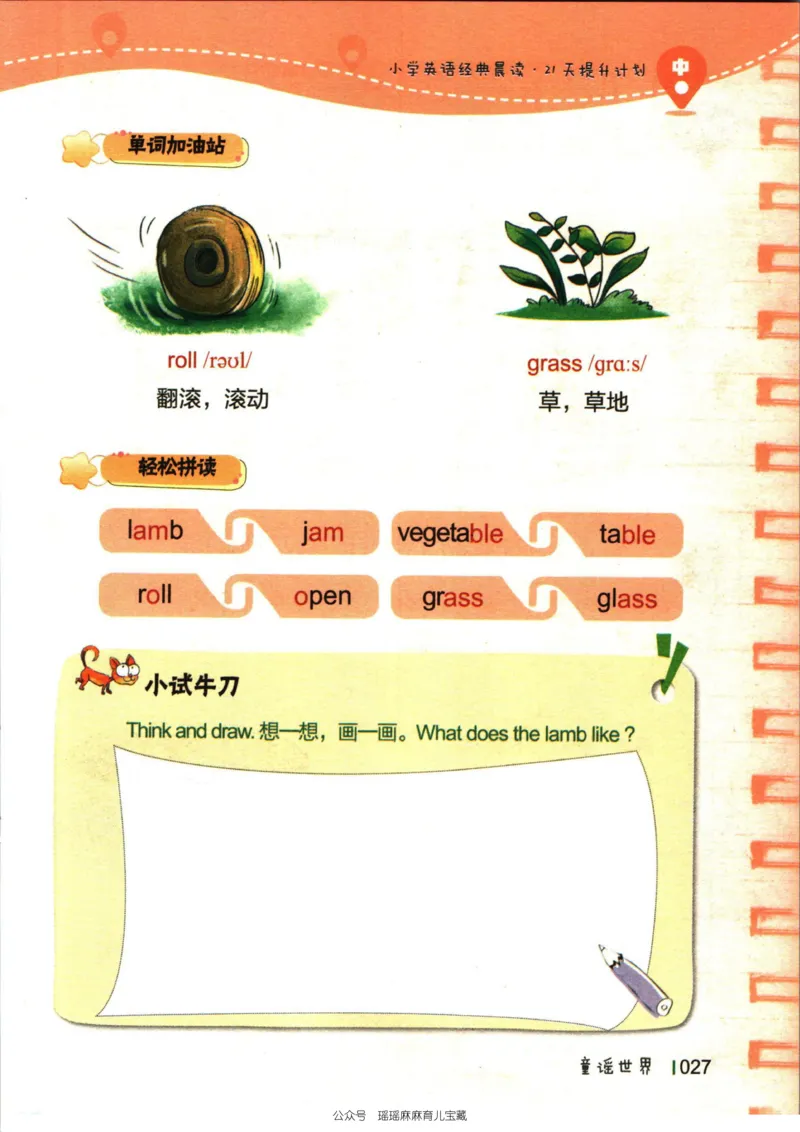 小学英语经典晨读·21天提升计划
中
单词加油站
roll /rəʊl/
grass /ɡrɑːs/
翻滚，滚动
草，草地
轻松拼读
lamb jam vegetable table
roll open grass glass
小试牛刀
Think and draw. 想一想，画一画。What does the lamb like ?
童谣世界 027
公众号 瑶瑶麻麻育儿宝藏